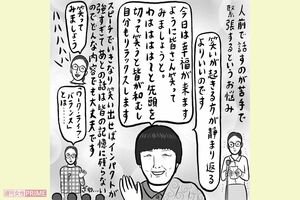 人前で話すのが苦手で
緊張するというお悩み
笑いが起きる方が静まり返る
よりいいのです
今日は幸福が来ます
ように皆さん笑って
みましょうと。
わはははは！と先頭を
切って笑うと皆が和むし
自分もリラックスします
スピーチでいきなり笑い出せばインパクトが
強すぎてあとの話は皆の記憶に残らない
のでどんな内容でも大丈夫です
笑って
みましょう
ワハハハハ
週刊女性PRIME